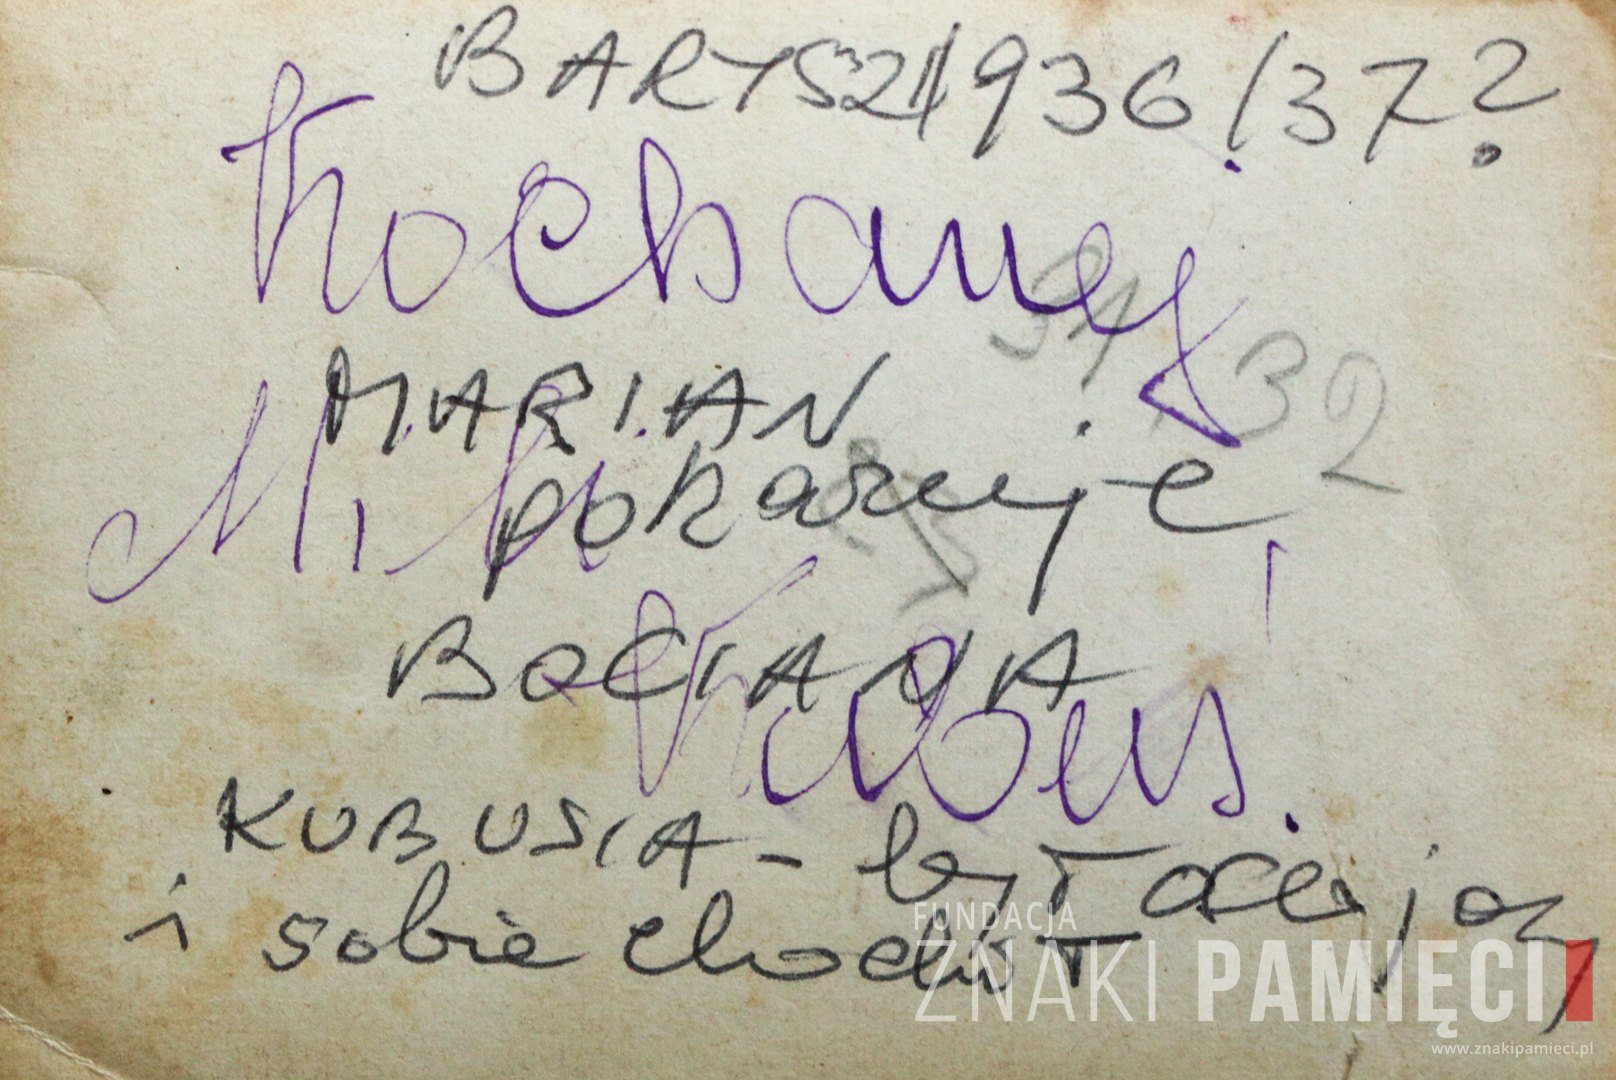 BARYSZ/1936/37?
Kochanej
31
32
MARIAN
pokazuje
BOCIANA
Kubuś.
KUBUSIA - był
i sobie chodził
FUNDACJA
ZNAKI PAMIĘCI
www.znakipamieci.pl